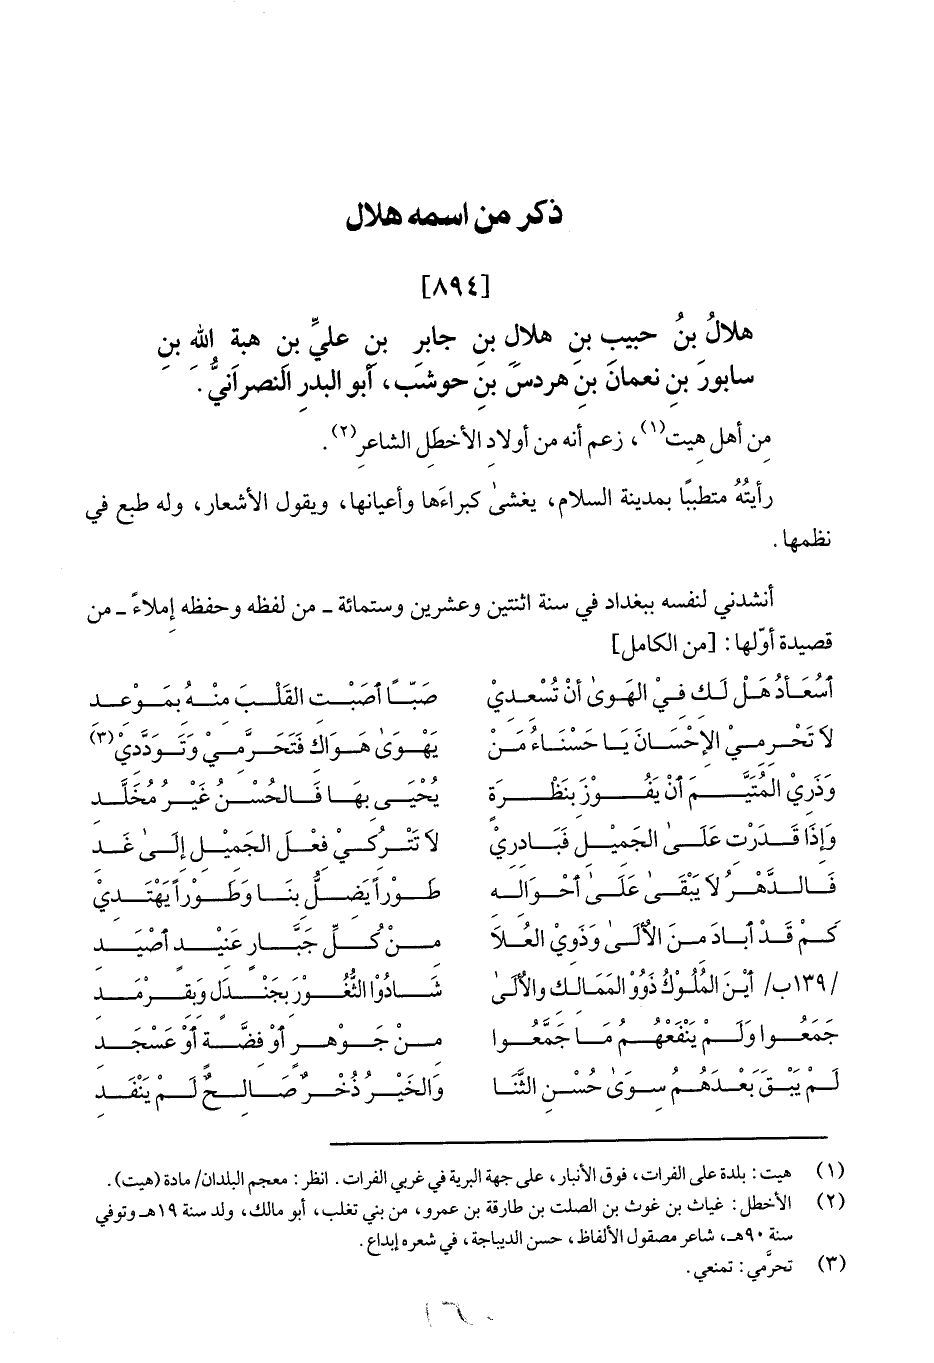 ذكر من اسمه هلال
[٨٩٤]
هلالُ بنُ حبيبِ بنِ هلالِ بنِ جابرِ بنِ عليِّ بنِ هبةِ اللهِ بنِ
سابورَ بنِ نعمانَ بنِ هردسَ بنِ حوشبَ، أبو البدرِ النصرانيُّ.
من أهلِ هيت(١)، زعم أنه من أولادِ الأخطلِ الشاعرِ(٢).
رأيتُهُ متطببًا بمدينة السلامِ، يغشىٰ كبراءَها وأعيانها، ويقول الأشعار، وله طبع في
نظمها.
أنشدني لنفسه ببغداد في سنة اثنتين وعشرين وستمائة ـ من لفظه وحفظه إملاءً ـ من
قصيدة أوّلها: [من الكامل]
أسُعَادُ هَلْ لَكِ فيْ الهَوىٰ أنْ تُسْعدِيْ صَبّاً أصَبْتِ القَلْبَ منْهُ بمَوْعدِ
لاَ تَحْرمي الإحْسَانَ يَا حَسْنَاءُ مَنْ يَهْوَىٰ هَوَاكِ فَتَحَرَّميْ وَتَوَدَّديْ(٣)
وَذَري المُتَيَّمَ أنْ يَفُوْزَ بنَظْرَةٍ يُحْيَى بهَا فَالحُسْنُ غَيْرُ مُخَلَّدِ
وَإذَا قَدَرْتِ عَلَىٰ الجَميْلِ فَبَادريْ لاَ تَتْرُكيْ فعْلَ الجَميْلِ إلَىٰ غَدِ
فَالدَّهْرُ لاَ يَبْقَىٰ عَلَىٰ أحْوَاله طَوْراً يَضلُّ بنَا وَطَوْراً يَهْتَديْ
كَمْ قَدْ أبَادَ منَ الأُلَىٰ وَذَويْ العُلاَ منْ كُلِّ جَبَّارٍ عَنيْدٍ أصْيَدِ
/١٣٩ب/ أيْنَ المُلُوْكُ ذَوُو المَمَالكِ والأُلَىٰ شَادُوا الثُّغُوْرَ بجَنْدَلٍ وَبقَرْمَدِ
جَمَعُوا وَلَمْ يَنْفَعْهُمُ مَا جَمَّعُوا منْ جَوْهَرٍ أوْ فضَّةٍ أوْ عَسْجَدِ
لَمْ يَبْقَ بَعْدَهُمُ سوَىٰ حُسْنِ الثَّنَا وَالخَيْرُ ذُخْرٌ صَالحٌ لَمْ يَنْفَدِ
(١) هيت: بلدة على الفرات، فوق الأنبار، على جهة البرية في غربي الفرات. انظر: معجم البلدان/ مادة (هيت).
(٢) الأخطل: غياث بن غوث بن الصلت بن طارقة بن عمرو، من بني تغلب، أبو مالك، ولد سنة ١٩هـ وتوفي
سنة ٩٠هـ، شاعر مصقول الألفاظ، حسن الديباجة، في شعره إبداع.
(٣) تحرَّمي: تمنعي.
١٦٠